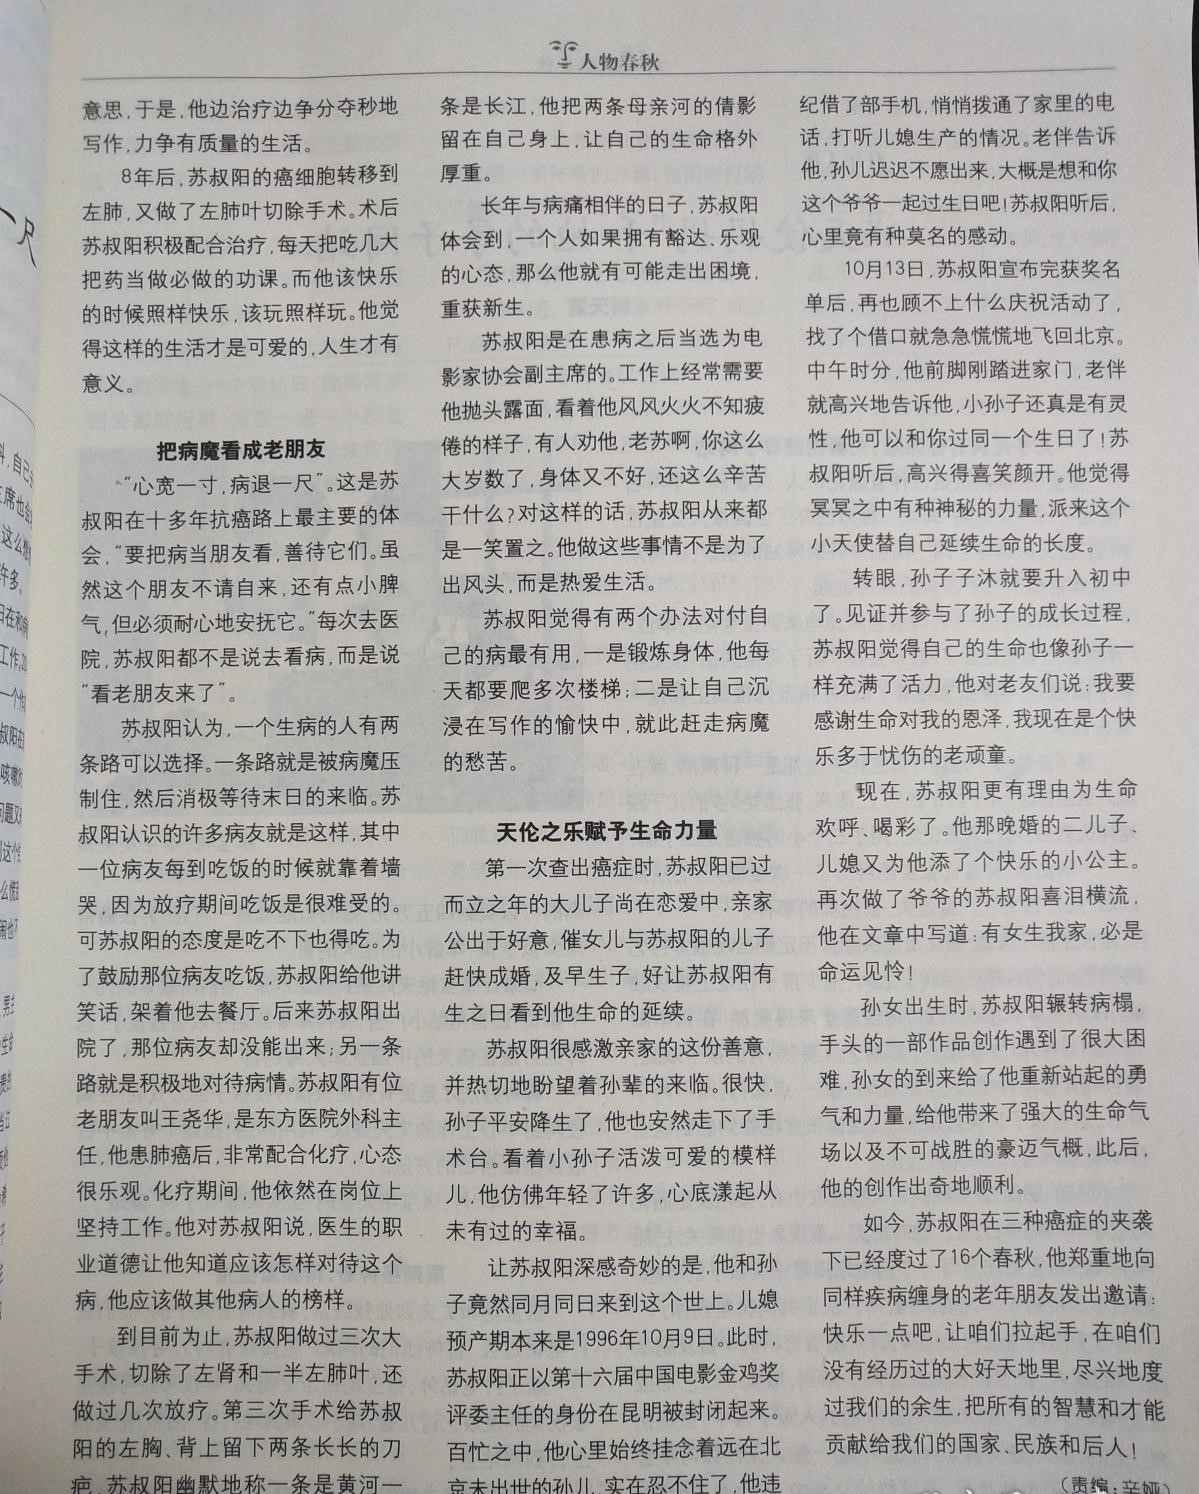 人物春秋
意思,于是,他边治疗边争分夺秒地
写作,力争有质量的生活。
8年后,苏叔阳的癌细胞转移到
左肺,又做了左肺叶切除手术。术后
苏叔阳积极配合治疗,每天把吃几大
把药当做必做的功课。而他该快乐
的时候照样快乐,该玩照样玩。他觉
得这样的生活才是可爱的,人生才有
意义。
把病魔看成老朋友
“心宽一寸,病退一尺”。这是苏
叔阳在十多年抗癌路上最主要的体
会,“要把病当朋友看,善待它们。虽
然这个朋友不请自来,还有点小脾
气,但必须耐心地安抚它。”每次去医
院,苏叔阳都不是说去看病,而是说
“看老朋友来了”。
苏叔阳认为,一个生病的人有两
条路可以选择。一条路就是被病魔压
制住,然后消极等待末日的来临。苏
叔阳认识的许多病友就是这样,其中
一位病友每到吃饭的时候就靠着墙
哭,因为放疗期间吃饭是很难受的。
可苏叔阳的态度是吃不下也得吃。为
了鼓励那位病友吃饭,苏叔阳给他讲
笑话,架着他去餐厅。后来苏叔阳出
院了,那位病友却没能出来;另一条
路就是积极地对待病情。苏叔阳有位
老朋友叫王尧华,是东方医院外科主
任,他患肺癌后,非常配合化疗,心态
很乐观。化疗期间,他依然在岗位上
坚持工作。他对苏叔阳说,医生的职
业道德让他知道应该怎样对待这个
病,他应该做其他病人的榜样。
到目前为止,苏叔阳做过三次大
手术,切除了左肾和一半左肺叶,还
做过几次放疗。第三次手术给苏叔
阳的左胸、背上留下两条长长的刀
疤,苏叔阳幽默地称一条是黄河一
条是长江,他把两条母亲河的倩影
留在自己身上,让自己的生命格外
厚重。
长年与病痛相伴的日子,苏叔阳
体会到,一个人如果拥有豁达、乐观
的心态,那么他就有可能走出困境,
重获新生。
苏叔阳是在患病之后当选为电
影家协会副主席的。工作上经常需要
他抛头露面,看着他风风火火不知疲
倦的样子,有人劝他,老苏啊,你这么
大岁数了,身体又不好,还这么辛苦
干什么?对这样的话,苏叔阳从来都
是一笑置之。他做这些事情不是为了
出风头,而是热爱生活。
苏叔阳觉得有两个办法对付自
己的病最有用,一是锻炼身体,他每
天都要爬多次楼梯;二是让自己沉
浸在写作的愉快中,就此赶走病魔
的愁苦。
天伦之乐赋予生命力量
第一次查出癌症时,苏叔阳已过
而立之年的大儿子尚在恋爱中,亲家
公出于好意,催女儿与苏叔阳的儿子
赶快成婚,及早生子,好让苏叔阳有
生之日看到他生命的延续。
苏叔阳很感激亲家的这份善意,
并热切地盼望着孙辈的来临。很快,
孙子平安降生了,他也安然走下了手
术台。看着小孙子活泼可爱的模样
儿,他仿佛年轻了许多,心底漾起从
未有过的幸福。
让苏叔阳深感奇妙的是,他和孙
子竟然同月同日来到这个世上。儿媳
预产期本来是1996年10月9日。此时,
苏叔阳正以第十六届中国电影金鸡奖
评委主任的身份在昆明被封闭起来。
百忙之中,他心里始终挂念着远在北
京未出世的孙儿,实在忍不住了,他违
纪借了部手机,悄悄拨通了家里的电
话,打听儿媳生产的情况。老伴告诉
他,孙儿迟迟不愿出来,大概是想和你
这个爷爷一起过生日吧!苏叔阳听后,
心里竟有种莫名的感动。
10月13日,苏叔阳宣布完获奖名
单后,再也顾不上什么庆祝活动了,
找了个借口就急急慌慌地飞回北京。
中午时分,他前脚刚踏进家门,老伴
就高兴地告诉他,小孙子还真是有灵
性,他可以和你过同一个生日了!苏
叔阳听后,高兴得喜笑颜开。他觉得
冥冥之中有种神秘的力量,派来这个
小天使替自己延续生命的长度。
转眼,孙子子沐就要升入初中
了。见证并参与了孙子的成长过程,
苏叔阳觉得自己的生命也像孙子一
样充满了活力,他对老友们说:我要
感谢生命对我的恩泽,我现在是个快
乐多于忧伤的老顽童。
现在,苏叔阳更有理由为生命
欢呼、喝彩了。他那晚婚的二儿子、
儿媳又为他添了个快乐的小公主。
再次做了爷爷的苏叔阳喜泪横流,
他在文章中写道:有女生我家,必是
命运见怜!
孙女出生时,苏叔阳辗转病榻,
手头的一部作品创作遇到了很大困
难,孙女的到来给了他重新站起的勇
气和力量,给他带来了强大的生命气
场以及不可战胜的豪迈气概,此后,
他的创作出奇地顺利。
如今,苏叔阳在三种癌症的夹袭
下已经度过了16个春秋,他郑重地向
同样疾病缠身的老年朋友发出邀请:
快乐一点吧,让咱们拉起手,在咱们
没有经历过的大好天地里,尽兴地度
过我们的余生,把所有的智慧和才能
贡献给我们的国家、民族和后人!
(责编:辛娅)